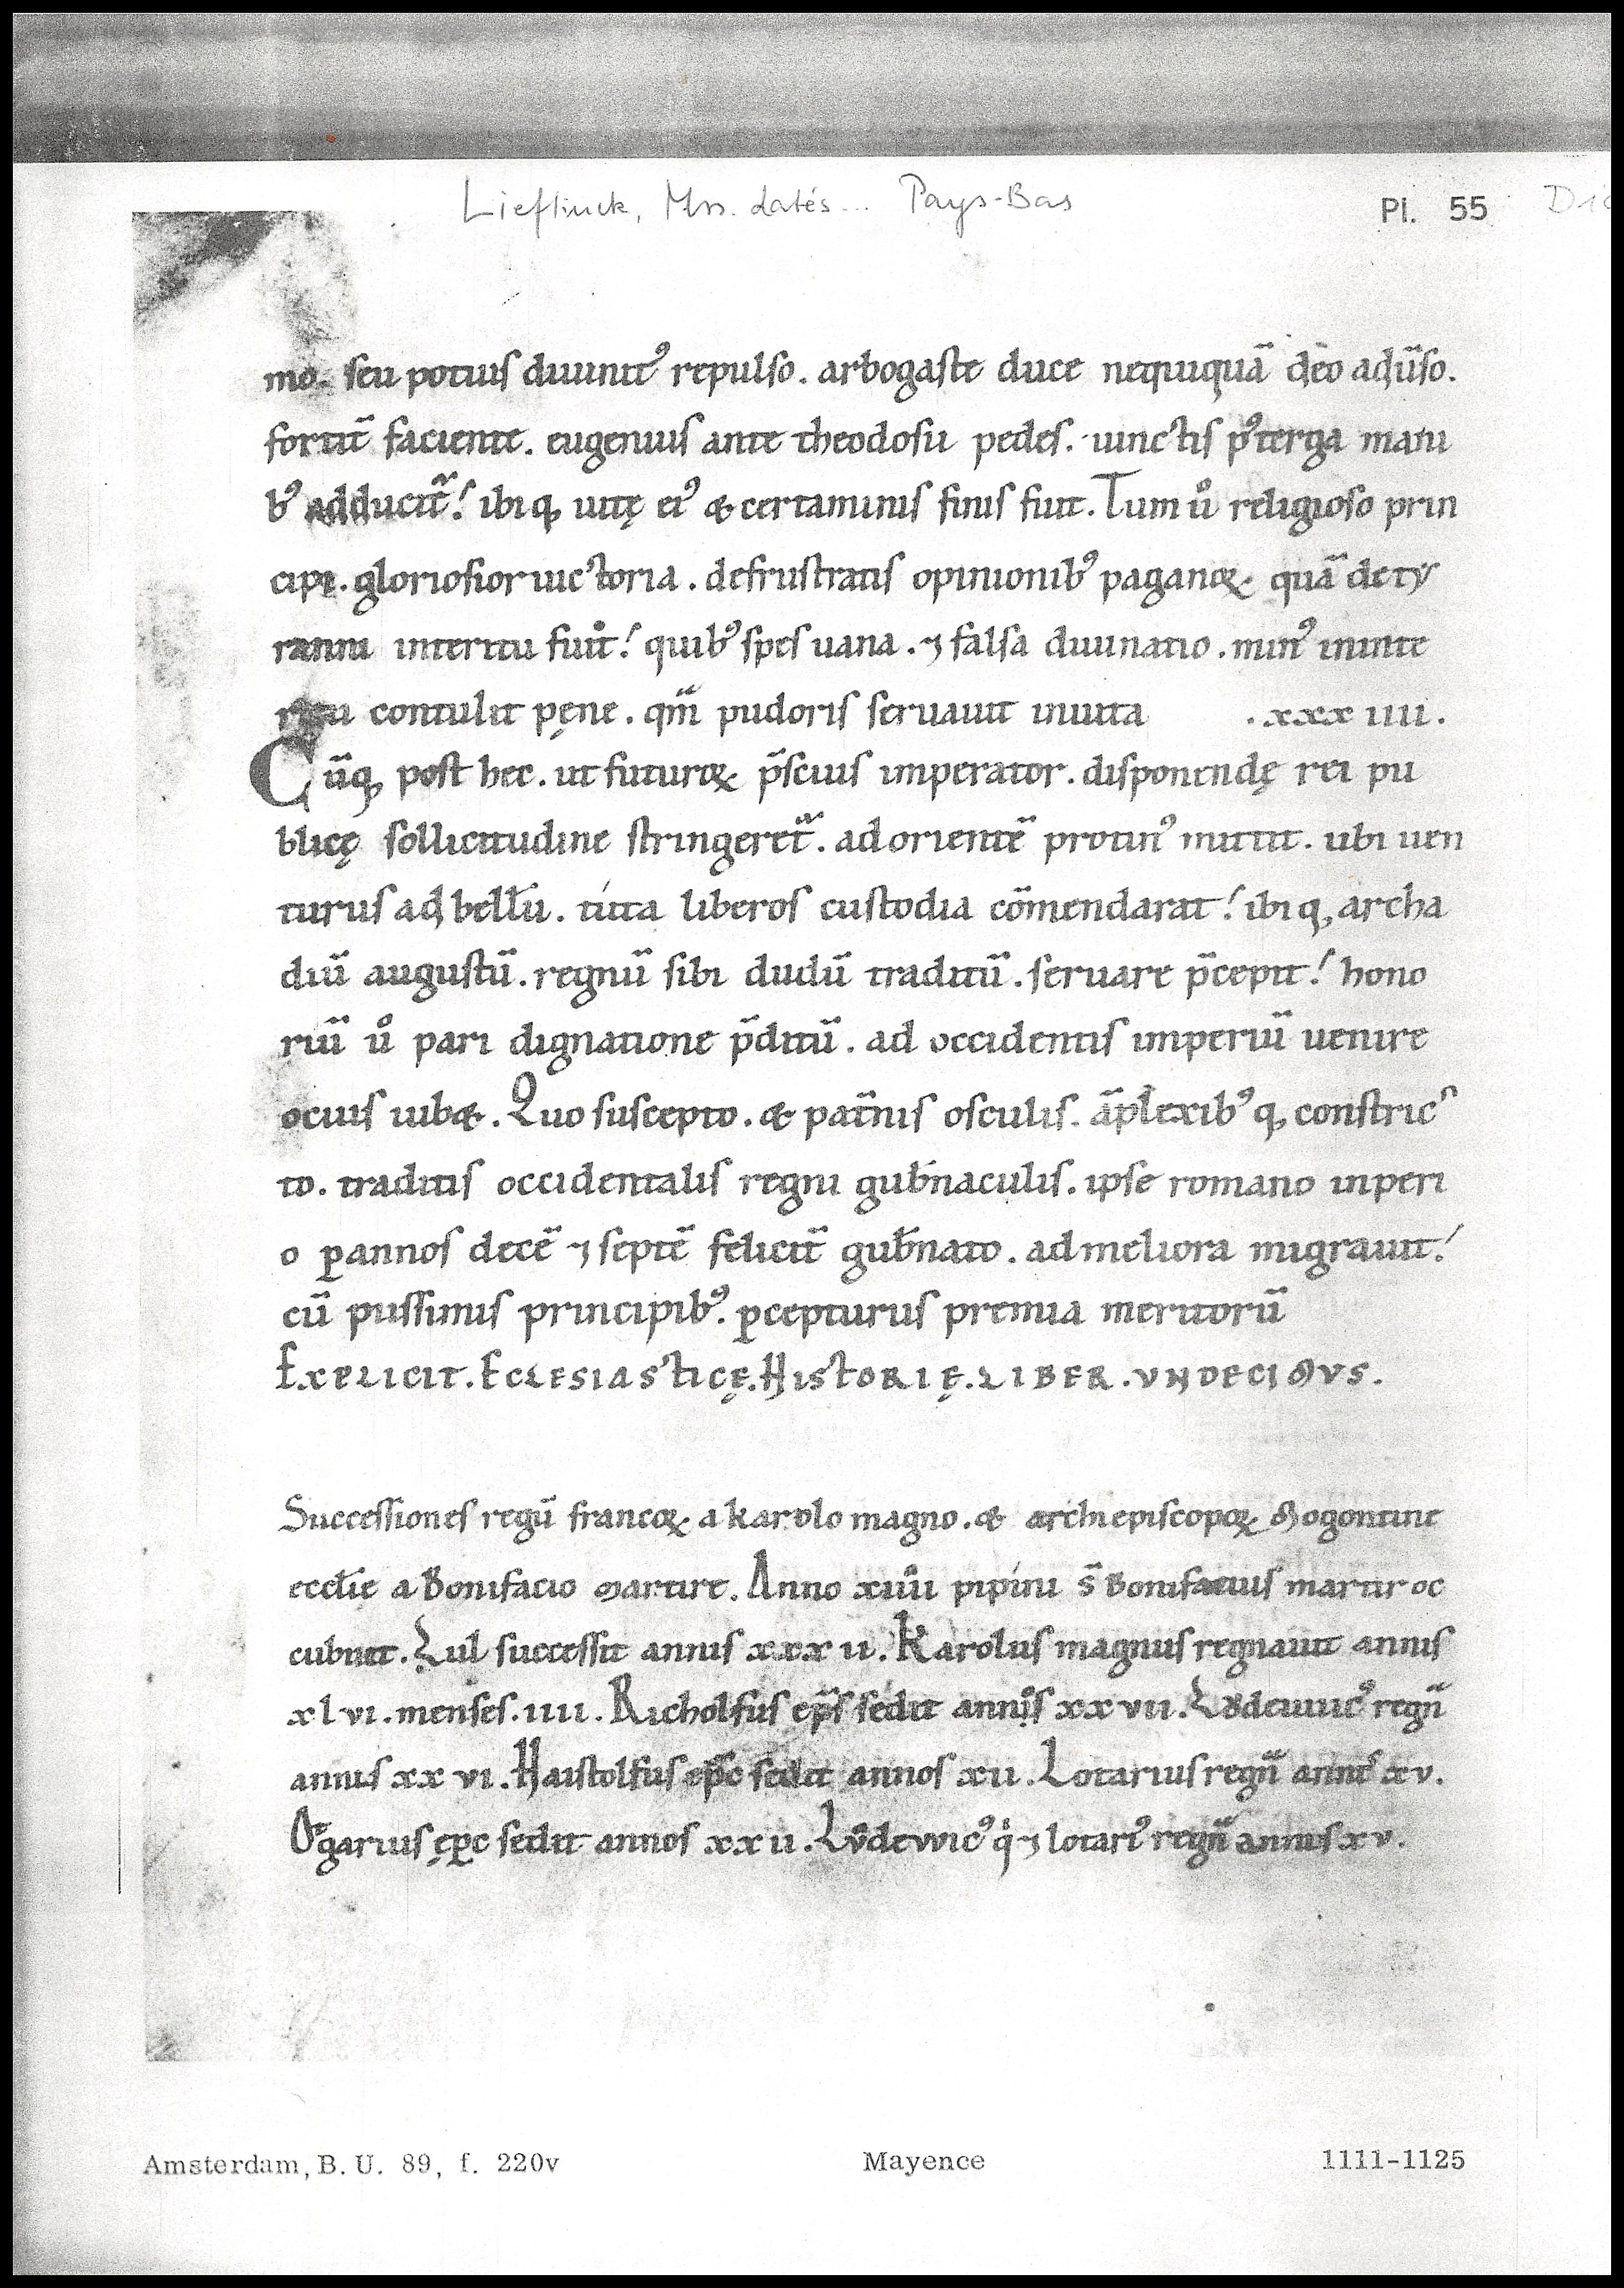 Lieftinck, Mss. datés... Pays-Bas
Pl. 55
mo. seu potius diuinitꝰ repulso. arbogaste duce nequiquā deo adūso.
fortit̄ faciente. eugenius ante theodosii pedes. uinctis pꝰterga mani
bꝰ adducit᷑. ibiq; uitę eiꝰ & certaminis finis fuit. Tum uͦ religioso prin
cipe. gloriosior uictoria. defrustratis opinionibꝰ paganoꝝ quā dety
ranni interitu fuit. quibꝰ spes uana. ⁊ falsa diuinatio. minꝰ ininte
ritu contulit pęne. qm̄ pudoris seruauit inuita .xxxiiii.
Cūq; post hec. ut futuroꝝ p̄scius imperator. disponendę rei pu
blicę sollicitudine stringeret᷑. ad orientē protinꝰ mittit. ubi uen
turus ad bellū. túta liberos custodia cōmendarat. ibiq; archa
diū augustū. regnū sibi dudū traditū. seruare p̄cepit. hono
riū uͦ pari dignatione p̄ditū. ad occidentis imperiū uenire
ocius iub&. Quo suscepto. & pat̄nis osculis. āplexibꝰq; constric
to. traditis occidentalis regni gub̄naculis. ipse romano inperi
o ꝑannos decē ⁊ septē felicit̄ gub̄nato. ad meliora migrauit.
cū piissimis principibꝰ. ꝑcepturus premia meritorū
Explicit. Eclesiasticę. Historię. Liber. undecimus.
Successiones regū francoꝝ a karolo magno. & archiepiscopoꝝ Mogontine
eccl̄ie a Bonifacio martire. Anno xiiii pipini s̄ Bonifacius martir oc
cubuit. Lul successit annis xxxii. Karolus magnus regnauit annis
xlvi. menses. iiii. Richolfus ep̄s sedit annis xxvii. Luͦdeuuicꝰ regn̄
annis xxvi. Haistolfus ep̄c sedit annos xii. Lotarius regn̄ annis xv.
Otgarius ep̄c sedit annos xxii. Luͦdewicꝰ qͥ ⁊ lotariꝰ regn̄ annis xv.
Amsterdam, B. U. 89, f. 220v Mayence 1111-1125